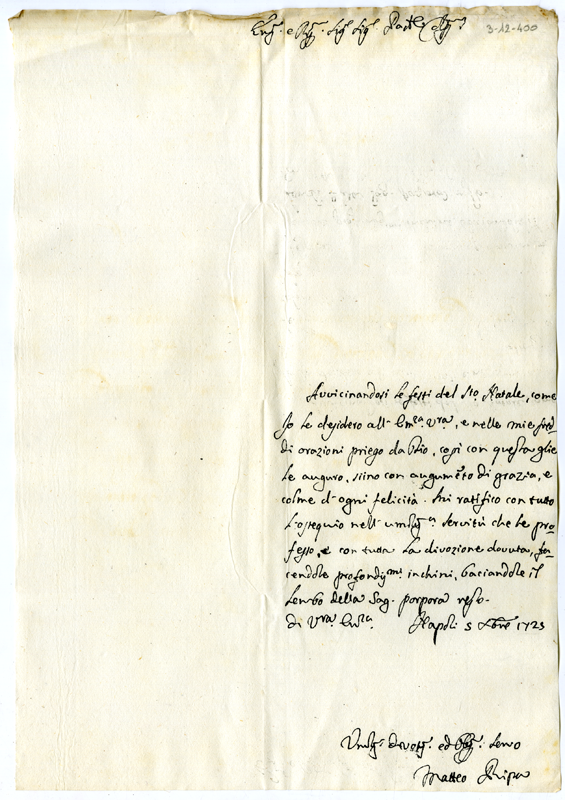 Em̃. e R̃. Sig. Sig. Pad.
3-12-400
Avvicinandosi le feste del Sto. Natale, come
Io le desidero all' Em.za V.ra, e nelle mie fred-
di orazioni priego da Dio, così con questa glie
le auguro, siino con augumẽto di grazia, e
colme d'ogni felicità. Mi ratifico con tutto
l'ossequio nell' umiliss.a servitù che le pro-
fesso, e con tutta la divozione dovuta, fa-
cendole profondiss.mi inchini, baciandole il
lembo della Sag. porpora resto.
di V.ra Em.za Napoli 5 Xbre 1723
Umiliss. devotiss. ed Obligatiss. servo
Matteo Ripa